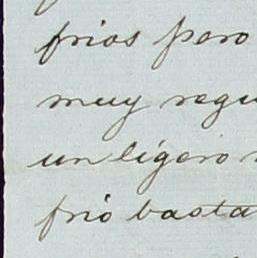 frios pero
muy regu
un ligero
frio basta